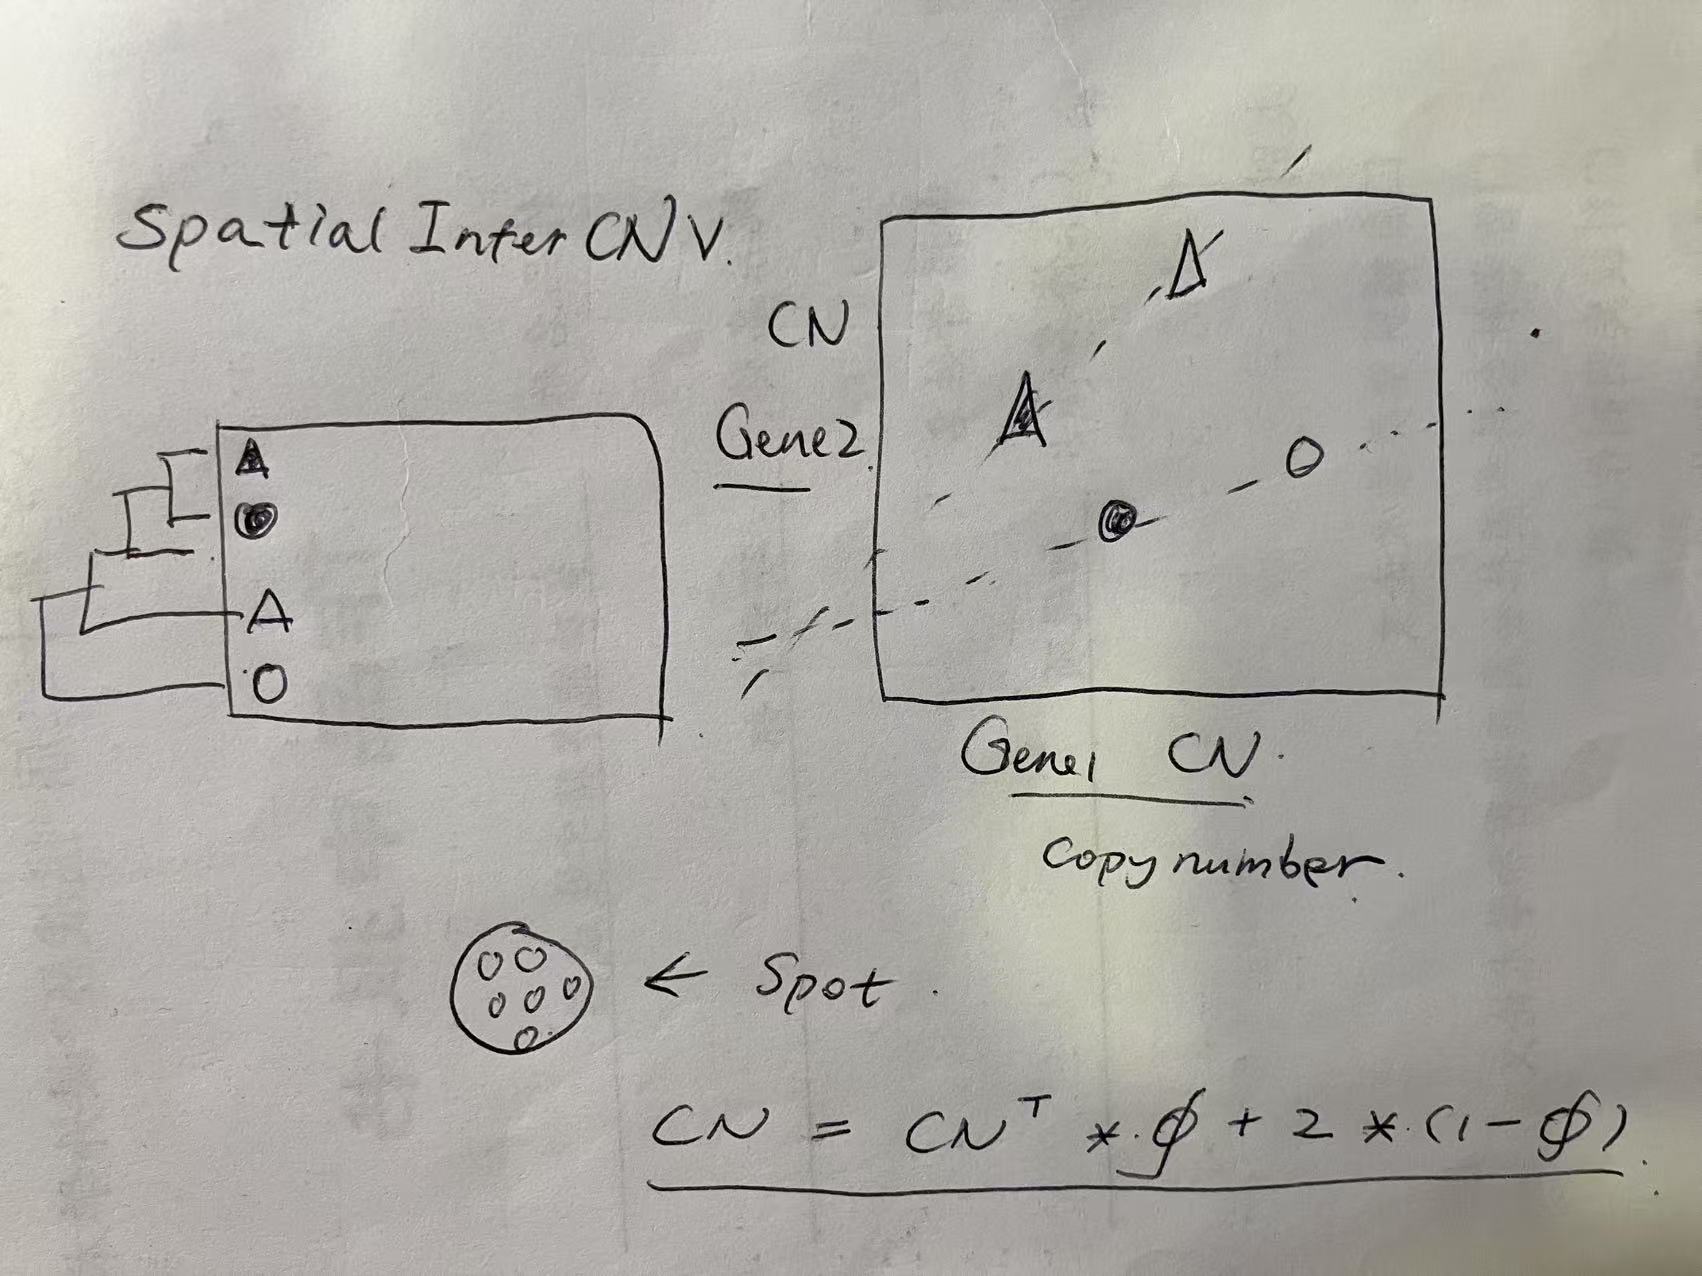 Spatial Inter CNV.
CN
Gene2
Gene1 CN.
Copy number.
← Spot.
CN = CNᵀ * ϕ + 2 * (1 - ϕ)